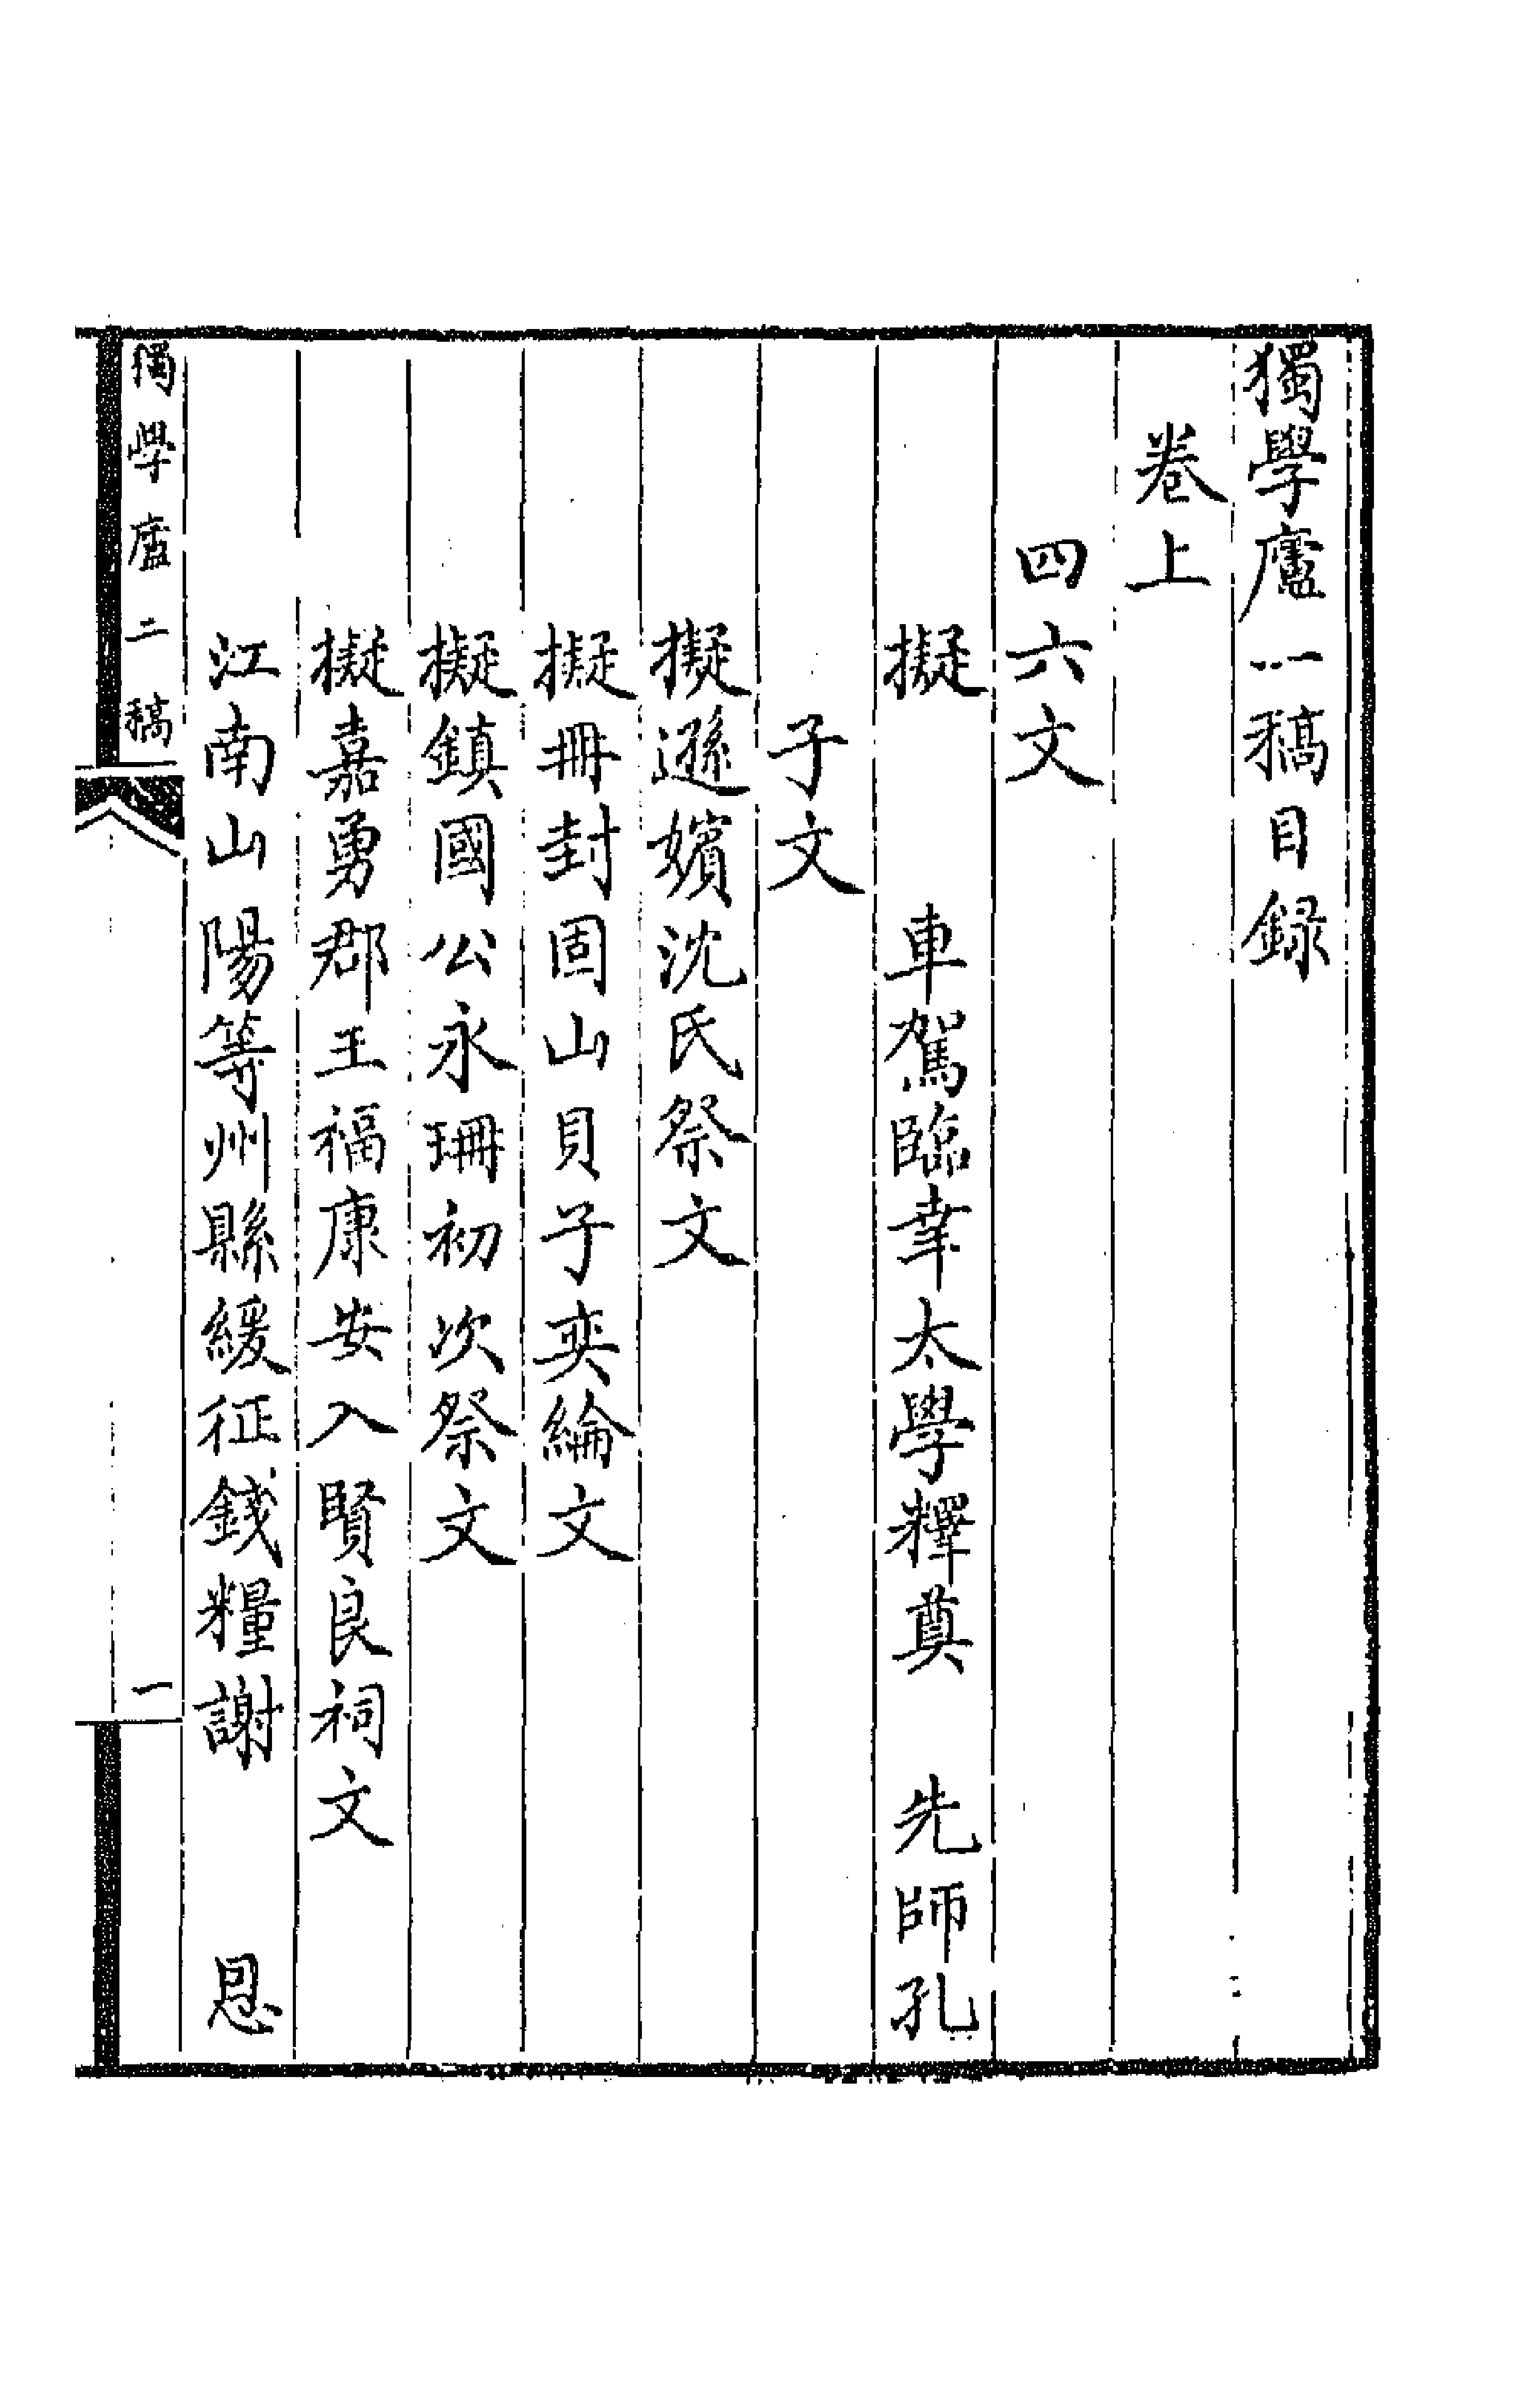 獨學廬二稿目錄
卷上
四六文
擬　車駕臨幸太學釋奠　先師孔
子文
擬遜嬪沈氏祭文
擬冊封固山貝子奕綸文
擬鎮國公永珊初次祭文
擬嘉勇郡王福康安入賢良祠文
江南山陽等州縣緩征錢糧謝　恩
獨學廬二稿
一